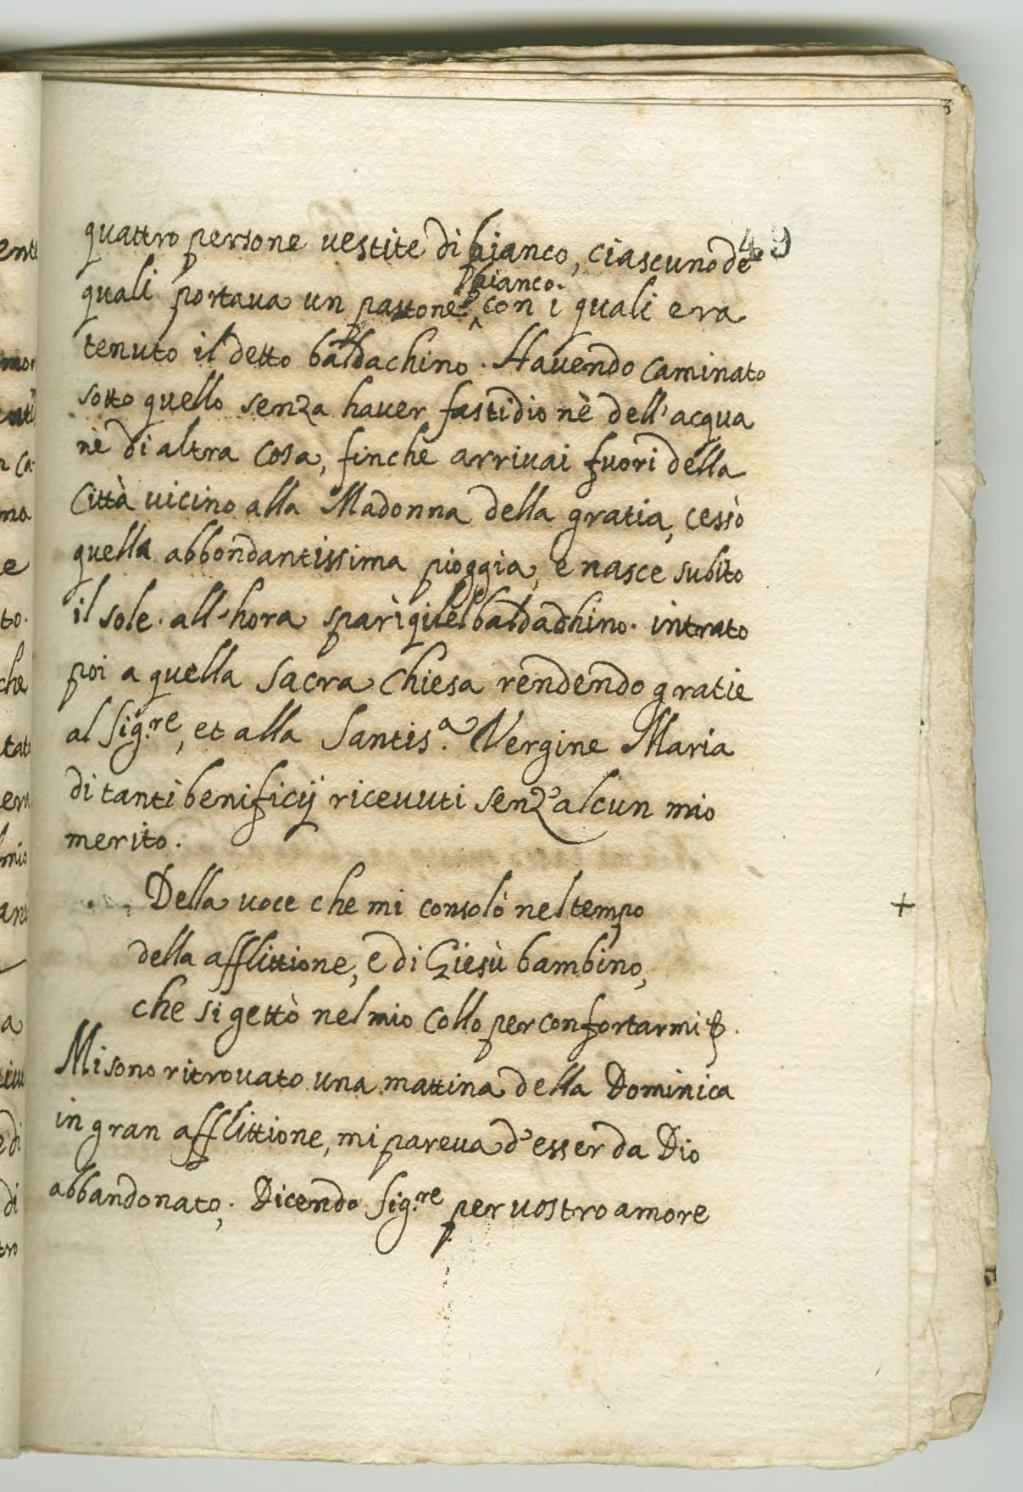 49
quattro persone uestite di bianco, ciascuno de
quali portaua un pastone bianco. con i quali era
tenuto il detto baldachino. Hauendo caminato
sotto quello senza hauer fastidio nè dell'acqua
nè di altra cosa, finchè arriuai fuori della
Città uicino alla Madonna della gratia, cessò
quella abbondantissima pioggia, e nasce subito
il sole. all'hora sparì baldachino. intrato
poi a quella sacra Chiesa rendendo gratie
al Sig.re, et alla Santis.a Vergine Maria
di tanti benificij riceuuti senz'alcun mio
merito.
Della uoce che mi consolò nel tempo
della afflittione, e di Giesù bambino,
che si gettò nel mio collo per confortarmi
Mi sono ritrouato una mattina della Dominica
in gran afflittione, mi pareua d'esser da Dio
abbandonato; Dicendo Sig.re per uostro amore
+